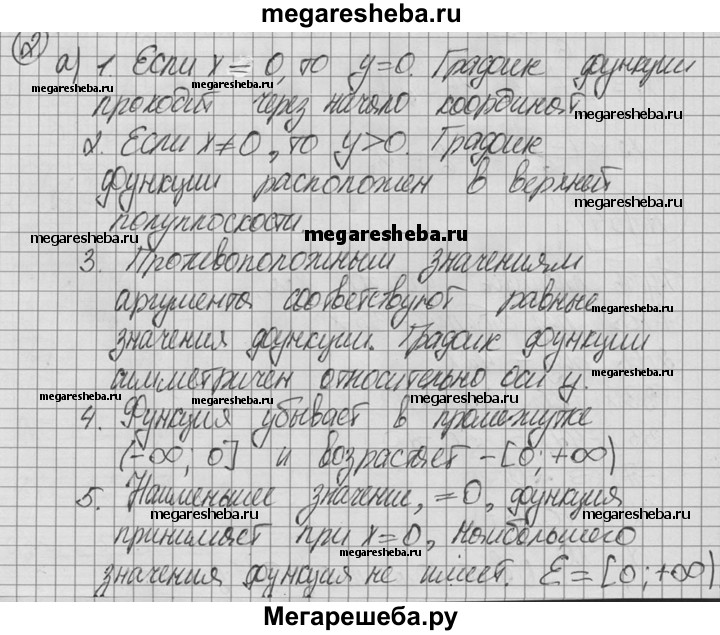 megaresheba.ru
② а) 1. Если x = 0, то y=0. График функции
megaresheba.ru megaresheba.ru
проходит через начало координат
megaresheba.ru
2. Если x≠0, то y>0. График
функции расположен в верхней
megaresheba.ru
полуплоскости.
megaresheba.ru megaresheba.ru
3. Противоположным значениям
аргумента соответствуют равные
megaresheba.ru megaresheba.ru
значения функции. График функции
симметричен относительно оси y.
megaresheba.ru megaresheba.ru
4. Функция убывает в промежутке
megaresheba.ru
(-∞; 0] и возрастает - [0; +∞)
5. Наименьшее значение, =0, функция
megaresheba.ru megaresheba.ru
принимает при x=0, наибольшего
megaresheba.ru
значения функция не имеет. E = [0; +∞)
megaresheba.ru
Мегарешеба.ру